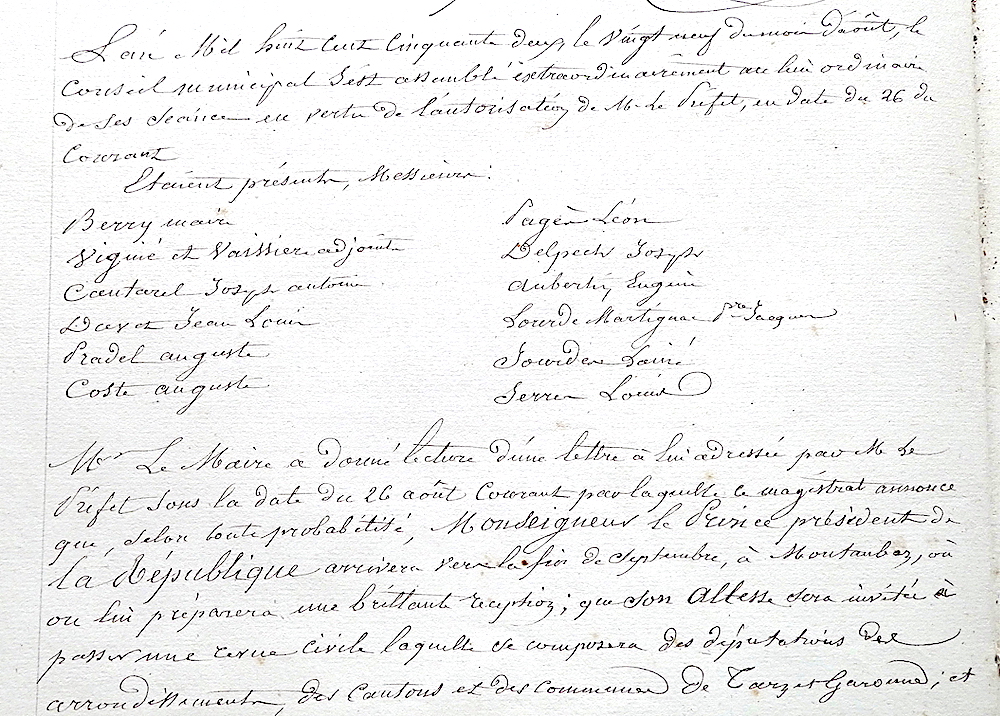 L'an Mil huit cent cinquante deux, le vingt neuf du mois d'août, le
Conseil municipal s'est assemblé extraordinairement au lieu ordinaire
de ses séances en vertu de l'autorisation de Mr. Le Préfet, en date du 26 du
Courant
Etaient présents, Messieurs :
Berry maire
Viguié et Vaissier adjoints
Cantarel Joseph antoine
Davet Jean Louis
Pradel auguste
Coste auguste
Pagès Léon
Delpech Joseph
Aubertin Eugène
Lourde Martignac Pre. Jacques
Jourdes Lainé
Serres Louis
Mr Le Maire a donné lecture d'une lettre à lui adressée par M. Le
Préfet sous la date du 26 août Courant par laquelle ce magistrat annonce
que, selon toute probabilité, Monseigneur le Prince président de
la République arrivera vers la fin de septembre, à Montauban, où
on lui préparera une brillante réception ; que son Altesse sera invitée à
passer une revue civile laquelle se composera des députations des
arrondissements, des Cantons et des communes de Tarn et Garonne ; et